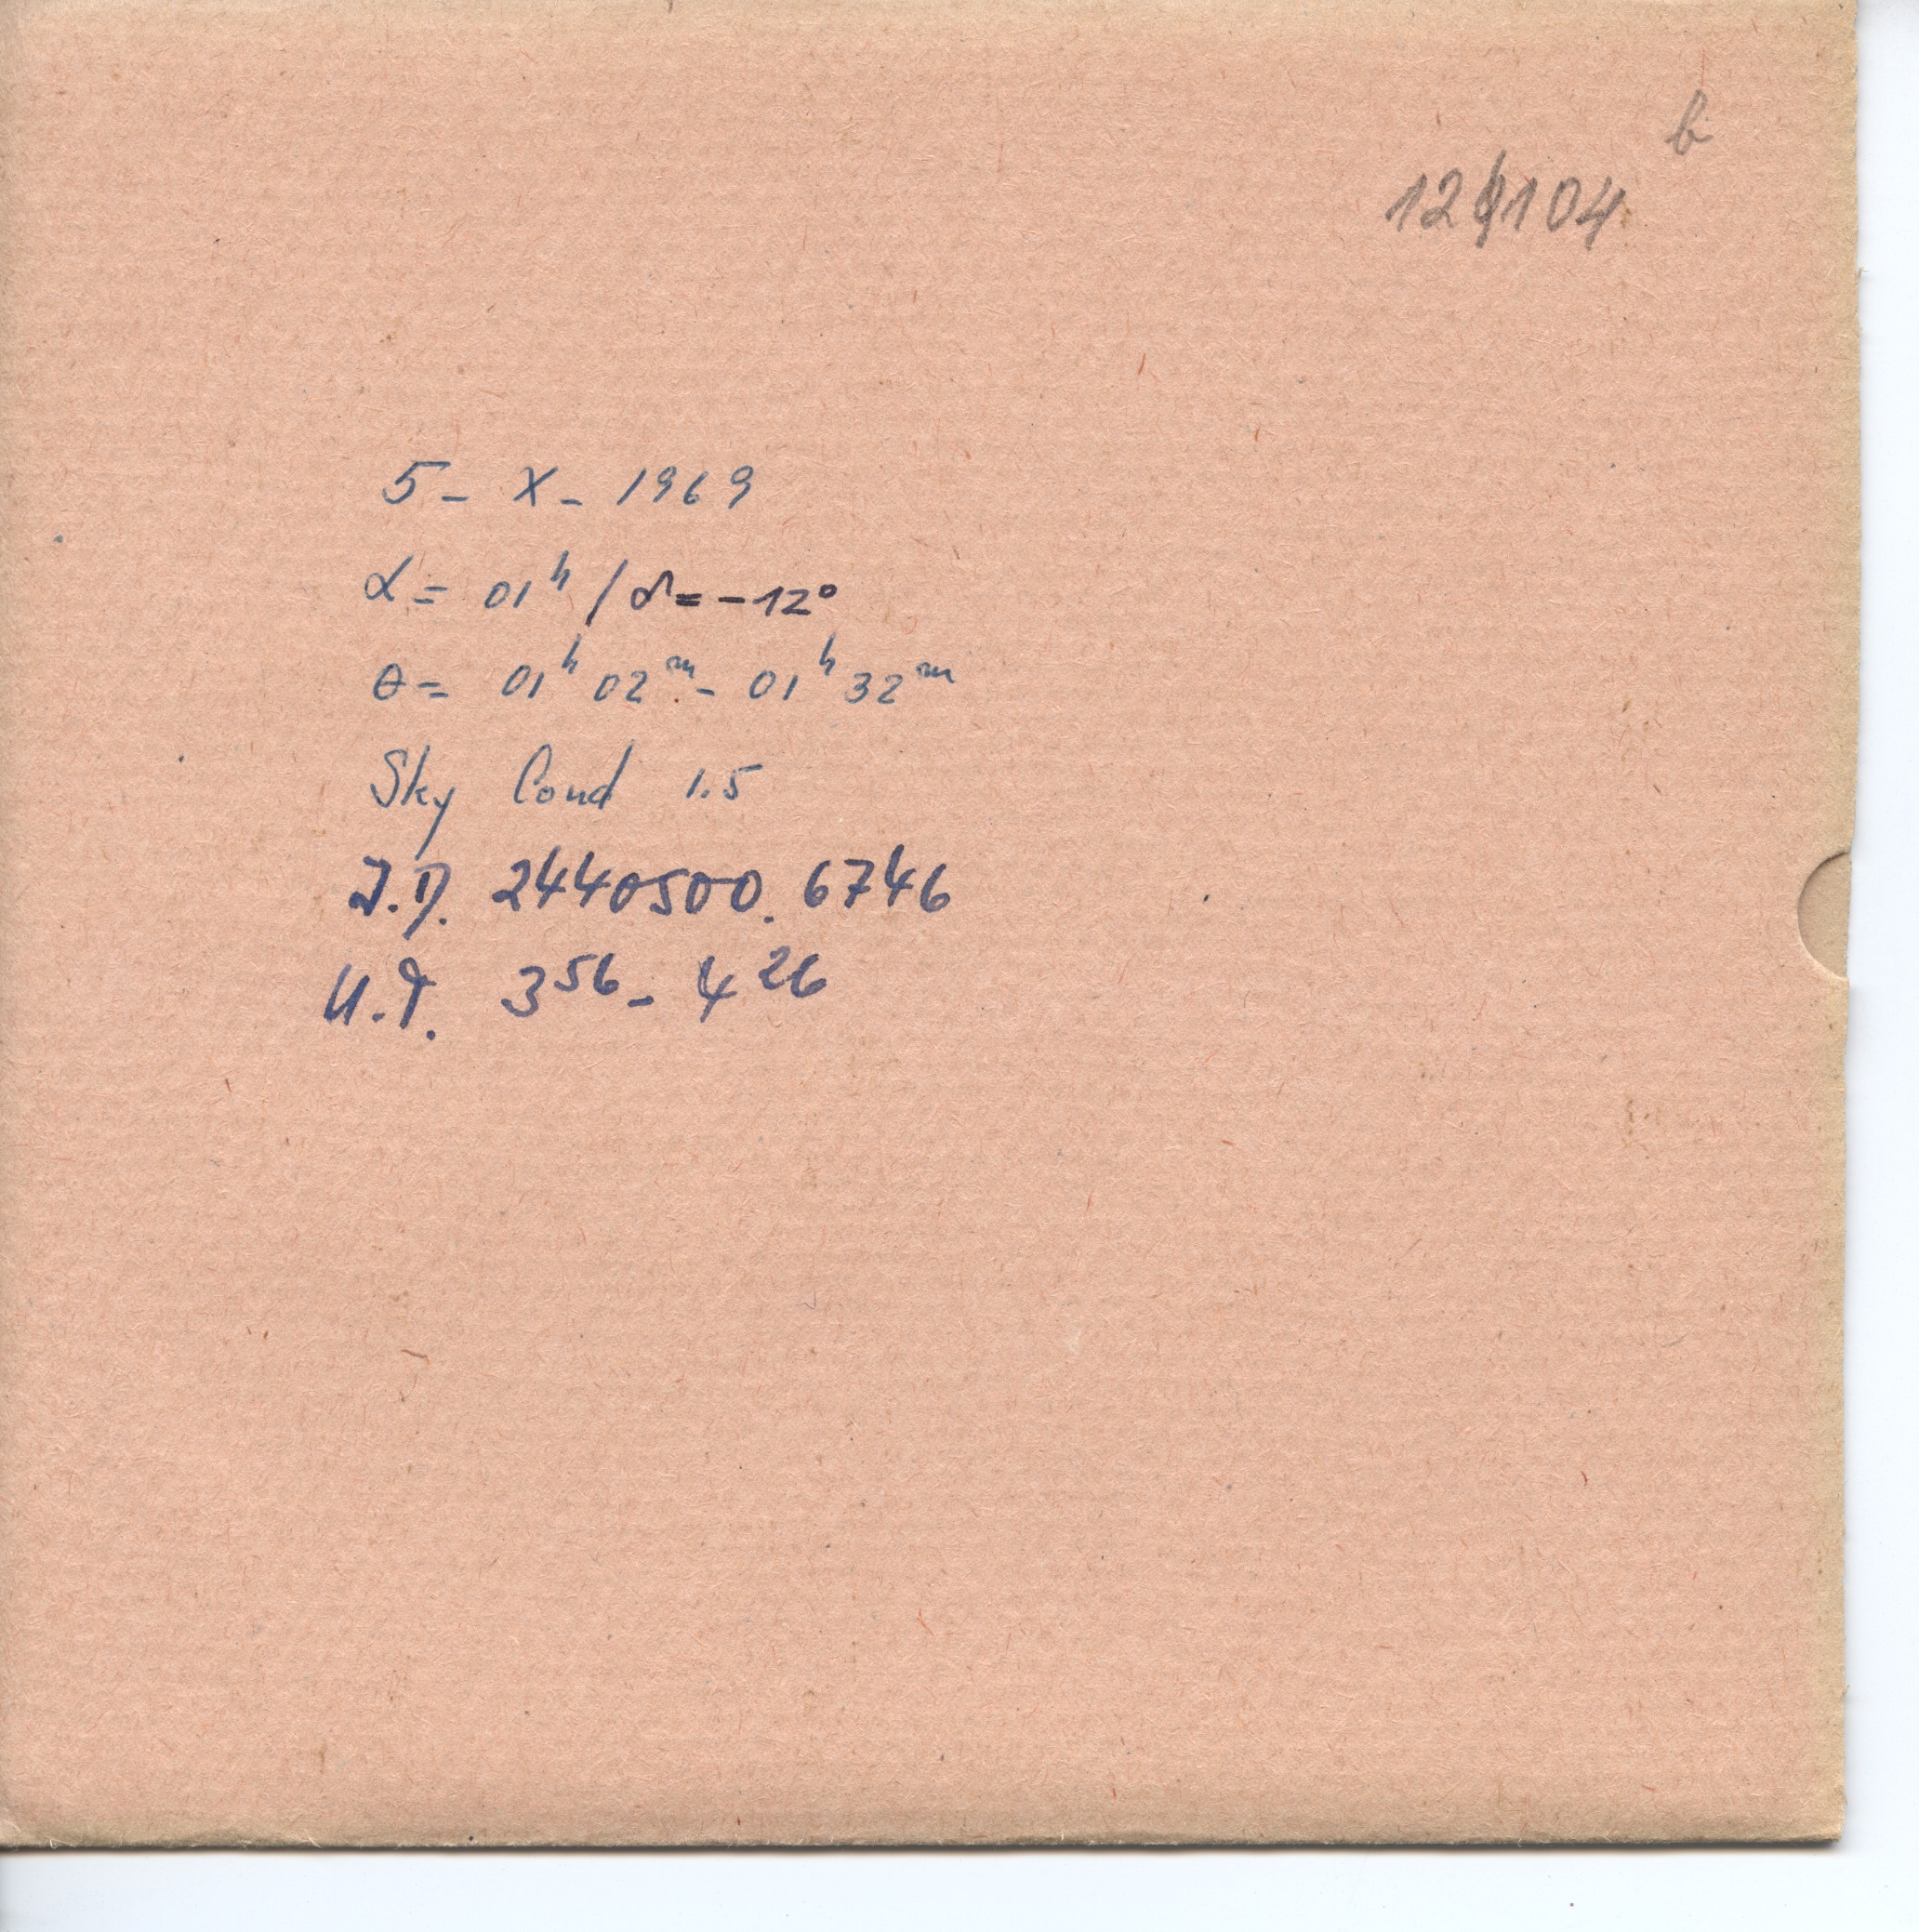 b
12 104
5 - X - 1969
α = 01ʰ / δ = -12°
θ = 01ʰ 02ᵐ - 01ʰ 32ᵐ
Sky Cond 1.5
J.D. 2440500.6746
U.T. 3⁵⁶ - 4²⁶